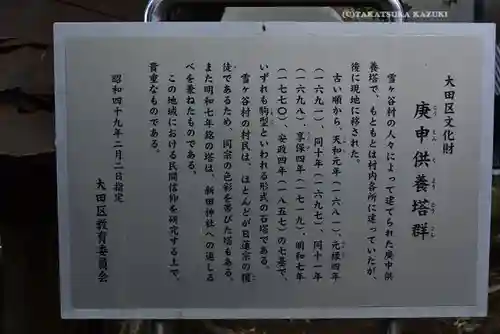 (C)TAKATSUKA KAZUKI
大田区文化財
庚申供養塔群
雪ヶ谷村の人々によって建てられた庚申供
養塔で、もともとは村内各所に建っていたが、
後に現地に移された。
古い順から、天和元年(一六八一)、元禄四年
(一六九一)、同十年(一六九七)、同十一年
(一六九八)、享保四年(一七一九)、明和七年
(一七七〇)、安政四年(一八五七)の七基で、
いずれも駒型といわれる形式の石塔である。
雪ヶ谷村の村民は、ほとんどが日蓮宗の檀
徒であるため、同宗の色彩を帯びた塔もある。
また明和七年銘の塔は、新田神社への道しる
べを兼ねたものである。
この地域における民間信仰を研究する上で、
貴重なものである。
昭和四十九年二月二日指定
大田区教育委員会